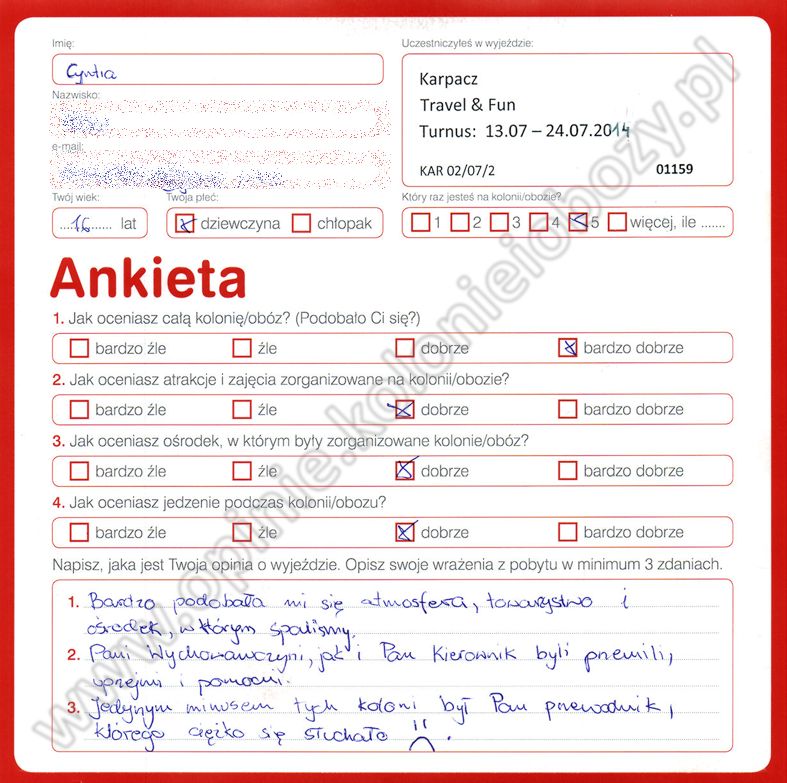 Imię:
Uczestniczyłeś w wyjeździe:
Cyntia
Nazwisko:
e-mail:
Karpacz
Travel & Fun
Turnus: 13.07 – 24.07.2014
KAR 02/07/2 01159
Twój wiek:
Twoja płeć:
Który raz jesteś na kolonii/obozie?
....16...... lat
dziewczyna chłopak
1 2 3 4 5 więcej, ile .......
Ankieta
1. Jak oceniasz całą kolonię/obóz? (Podobało Ci się?)
bardzo źle źle dobrze bardzo dobrze
2. Jak oceniasz atrakcje i zajęcia zorganizowane na kolonii/obozie?
bardzo źle źle dobrze bardzo dobrze
3. Jak oceniasz ośrodek, w którym były zorganizowane kolonie/obóz?
bardzo źle źle dobrze bardzo dobrze
4. Jak oceniasz jedzenie podczas kolonii/obozu?
bardzo źle źle dobrze bardzo dobrze
Napisz, jaka jest Twoja opinia o wyjeździe. Opisz swoje wrażenia z pobytu w minimum 3 zdaniach.
1. Bardzo podobała mi się atmosfera, towarzystwo i
ośrodek, w którym spaliśmy.
2. Pani Wychowawczyni, jak i Pan Kierownik byli przemili,
uprzejmi i pomocni.
3. Jedynym minusem tych koloni był Pan przewodnik,
którego ciężko się słuchało :( .
www.opinie.kolonieiobozy.pl